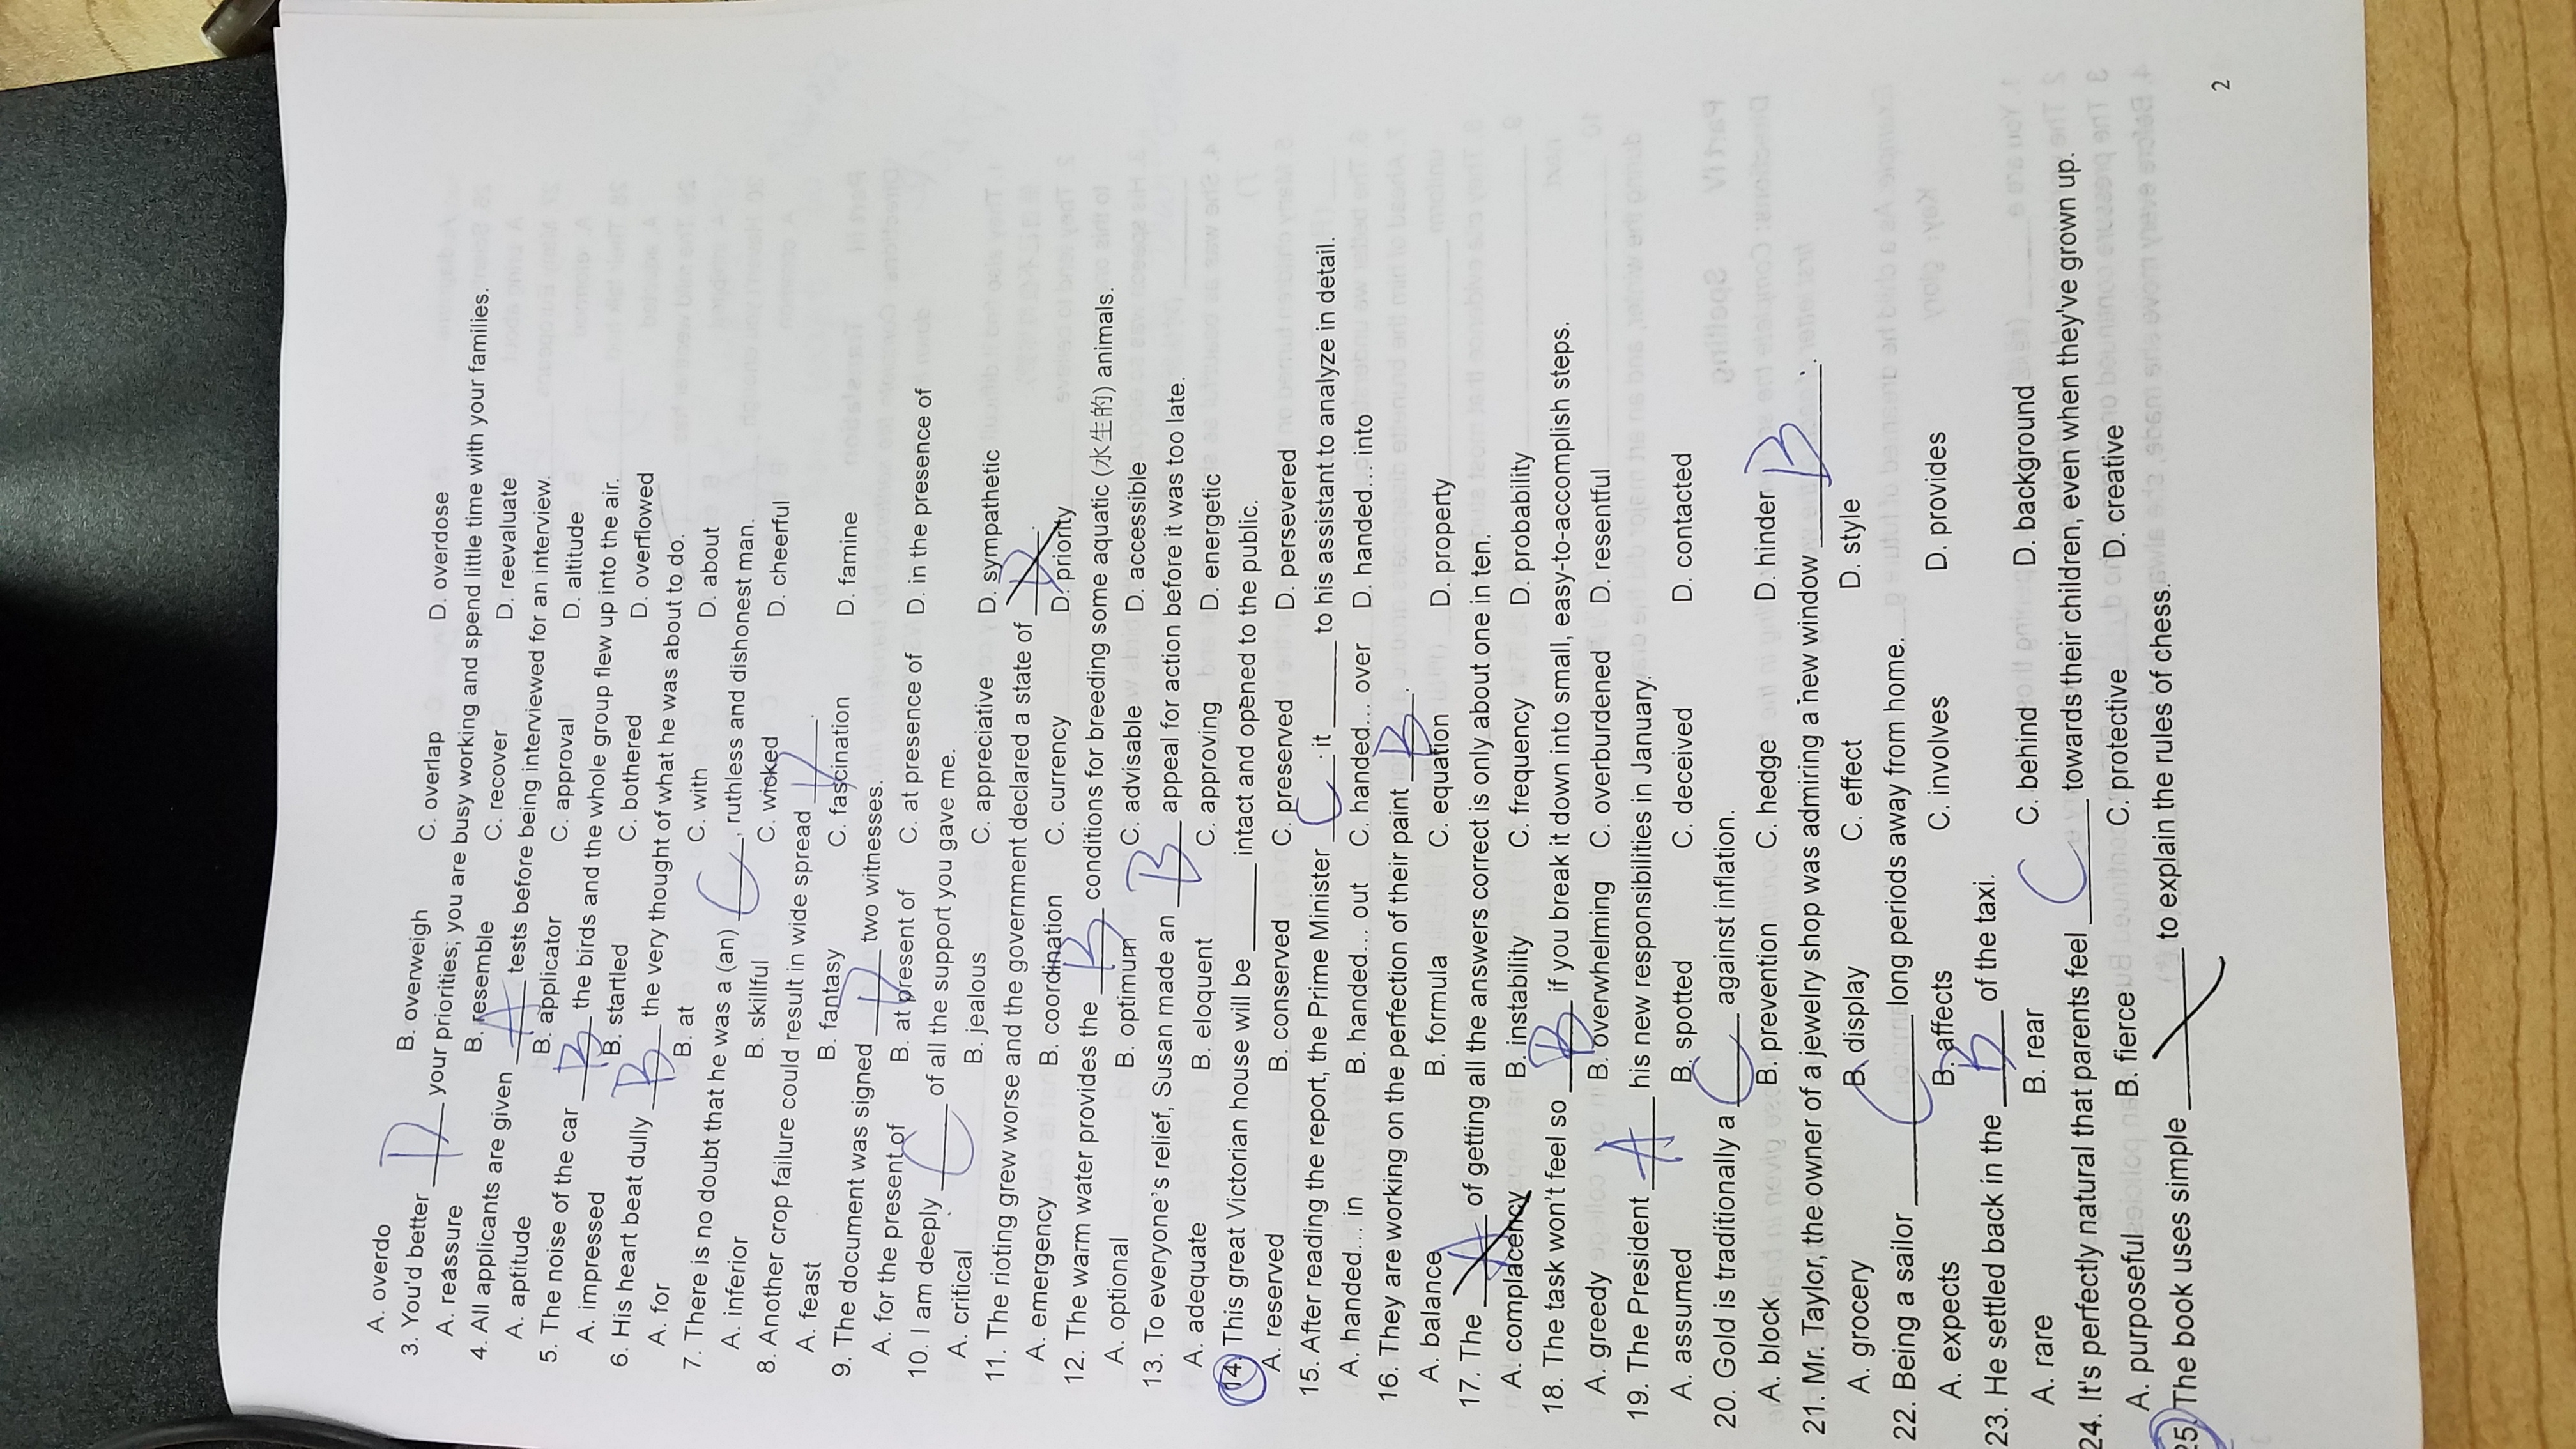 A. overdo B. overweigh C. overlap D. overdose
3. You'd better D your priorities; you are busy working and spend little time with your families.
A. reassure B. resemble C. recover D. reevaluate
4. All applicants are given A tests before being interviewed for an interview.
A. aptitude B. applicator C. approval D. altitude
5. The noise of the car B the birds and the whole group flew up into the air.
A. impressed B. startled C. bothered D. overflowed
6. His heart beat dully B the very thought of what he was about to do.
A. for B. at C. with D. about
7. There is no doubt that he was a (an) C, ruthless and dishonest man.
A. inferior B. skillful C. wicked D. cheerful
8. Another crop failure could result in wide spread D.
A. feast B. fantasy C. fascination D. famine
9. The document was signed D two witnesses.
A. for the present of B. at present of C. at presence of D. in the presence of
10. I am deeply C of all the support you gave me.
A. critical B. jealous C. appreciative D. sympathetic
11. The rioting grew worse and the government declared a state of D.
A. emergency B. coordination C. currency D. priority
12. The warm water provides the B conditions for breeding some aquatic (水生的) animals.
A. optional B. optimum C. advisable D. accessible
13. To everyone's relief, Susan made an B appeal for action before it was too late.
A. adequate B. eloquent C. approving D. energetic
14. This great Victorian house will be ______ intact and opened to the public.
A. reserved B. conserved C. preserved D. persevered
15. After reading the report, the Prime Minister C it ______ to his assistant to analyze in detail.
A. handed... in B. handed... out C. handed... over D. handed... into
16. They are working on the perfection of their paint B.
A. balance B. formula C. equation D. property
17. The A of getting all the answers correct is only about one in ten.
A. complacency B. instability C. frequency D. probability
18. The task won't feel so B if you break it down into small, easy-to-accomplish steps.
A. greedy B. overwhelming C. overburdened D. resentful
19. The President A his new responsibilities in January.
A. assumed B. spotted C. deceived D. contacted
20. Gold is traditionally a C against inflation.
A. block B. prevention C. hedge D. hinder
21. Mr. Taylor, the owner of a jewelry shop was admiring a new window B.
A. grocery B. display C. effect D. style
22. Being a sailor C long periods away from home.
A. expects B. affects C. involves D. provides
23. He settled back in the B of the taxi.
A. rare B. rear C. behind D. background
24. It's perfectly natural that parents feel C towards their children, even when they've grown up.
A. purposeful B. fierce C. protective D. creative
25. The book uses simple ______ to explain the rules of chess.
2